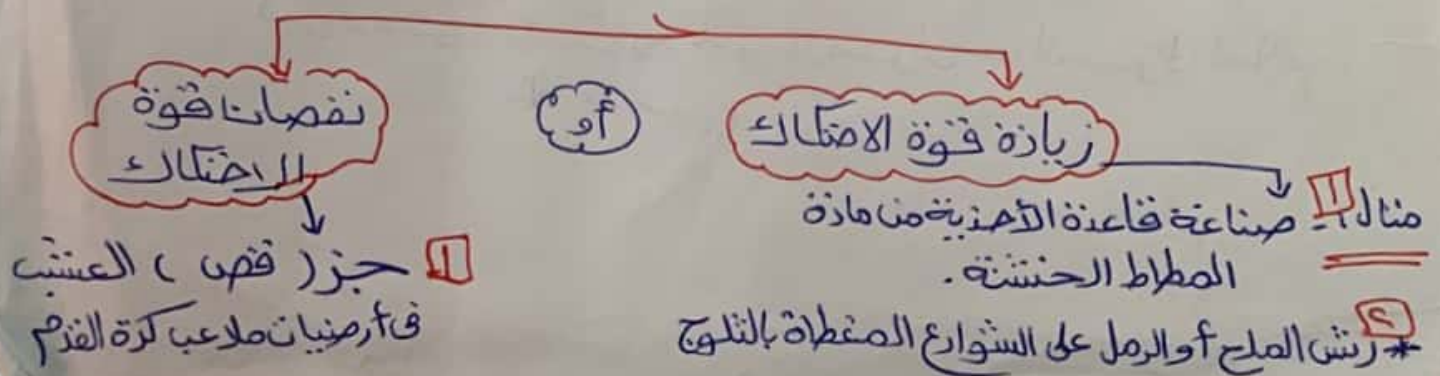 زيادة قوة الاحتكاك
أو
نقصان قوة
الاحتكاك
مثال ١- صناعة قاعدة الأحذية من مادة
المطاط الخشنة .
٢ * رش الملح أو الرمل على الشوارع المغطاة بالثلوج
١ جز ( قص ) العشب
فى أرضيات ملاعب كرة القدم